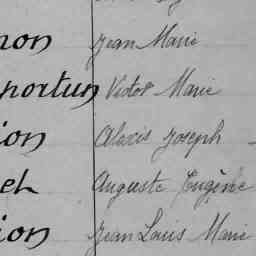 non Jean Marie
portun Victor Marie
ion Alexis Joseph
el Auguste Eugène
ion Jean Louis Marie